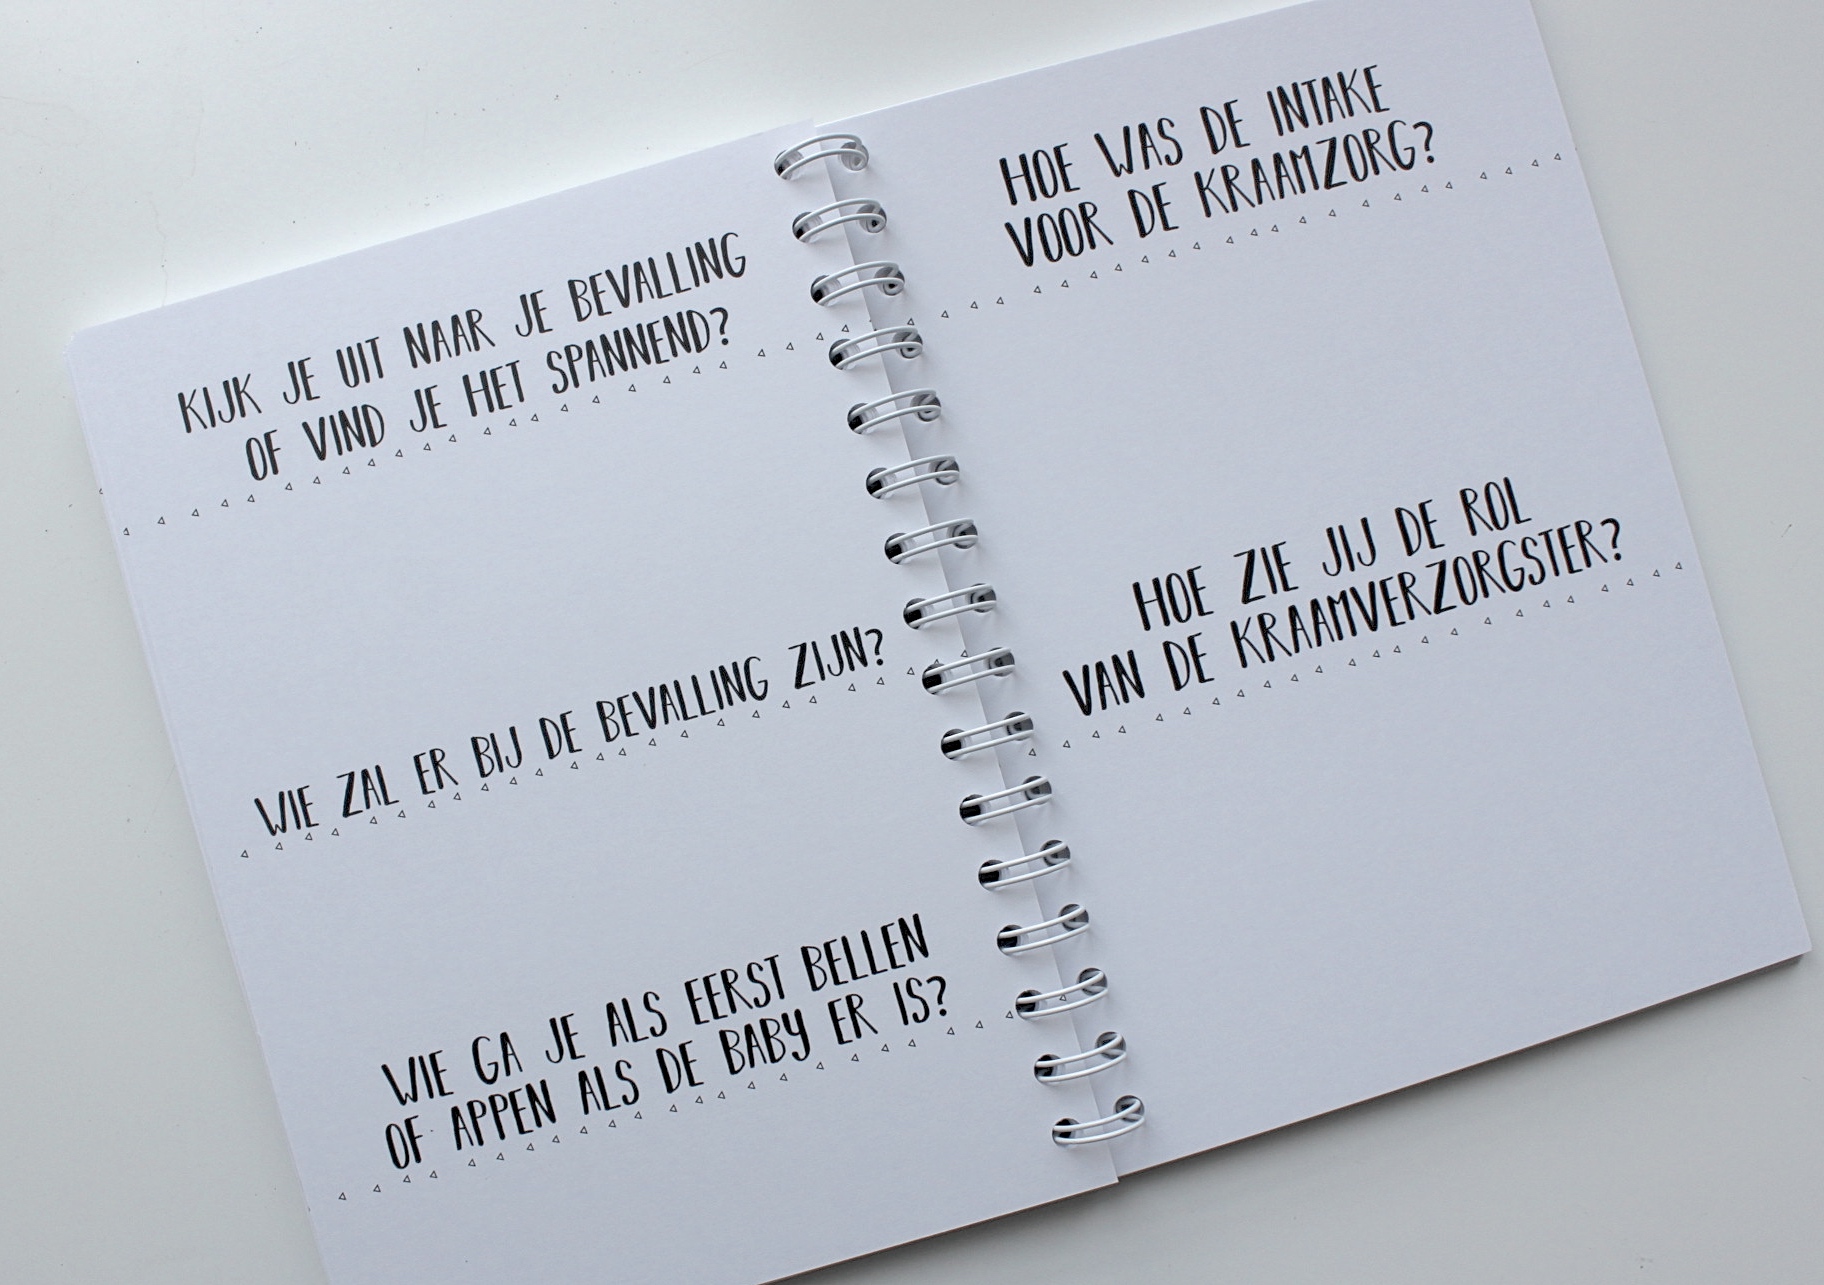 KIJK JE UIT NAAR JE BEVALLING
OF VIND JE HET SPANNEND?
WIE ZAL ER BIJ DE BEVALLING ZIJN?
WIE GA JE ALS EERST BELLEN
OF APPEN ALS DE BABY ER IS?
HOE WAS DE INTAKE
VOOR DE KRAAMZORG?
HOE ZIE JIJ DE ROL
VAN DE KRAAMVERZORGSTER?